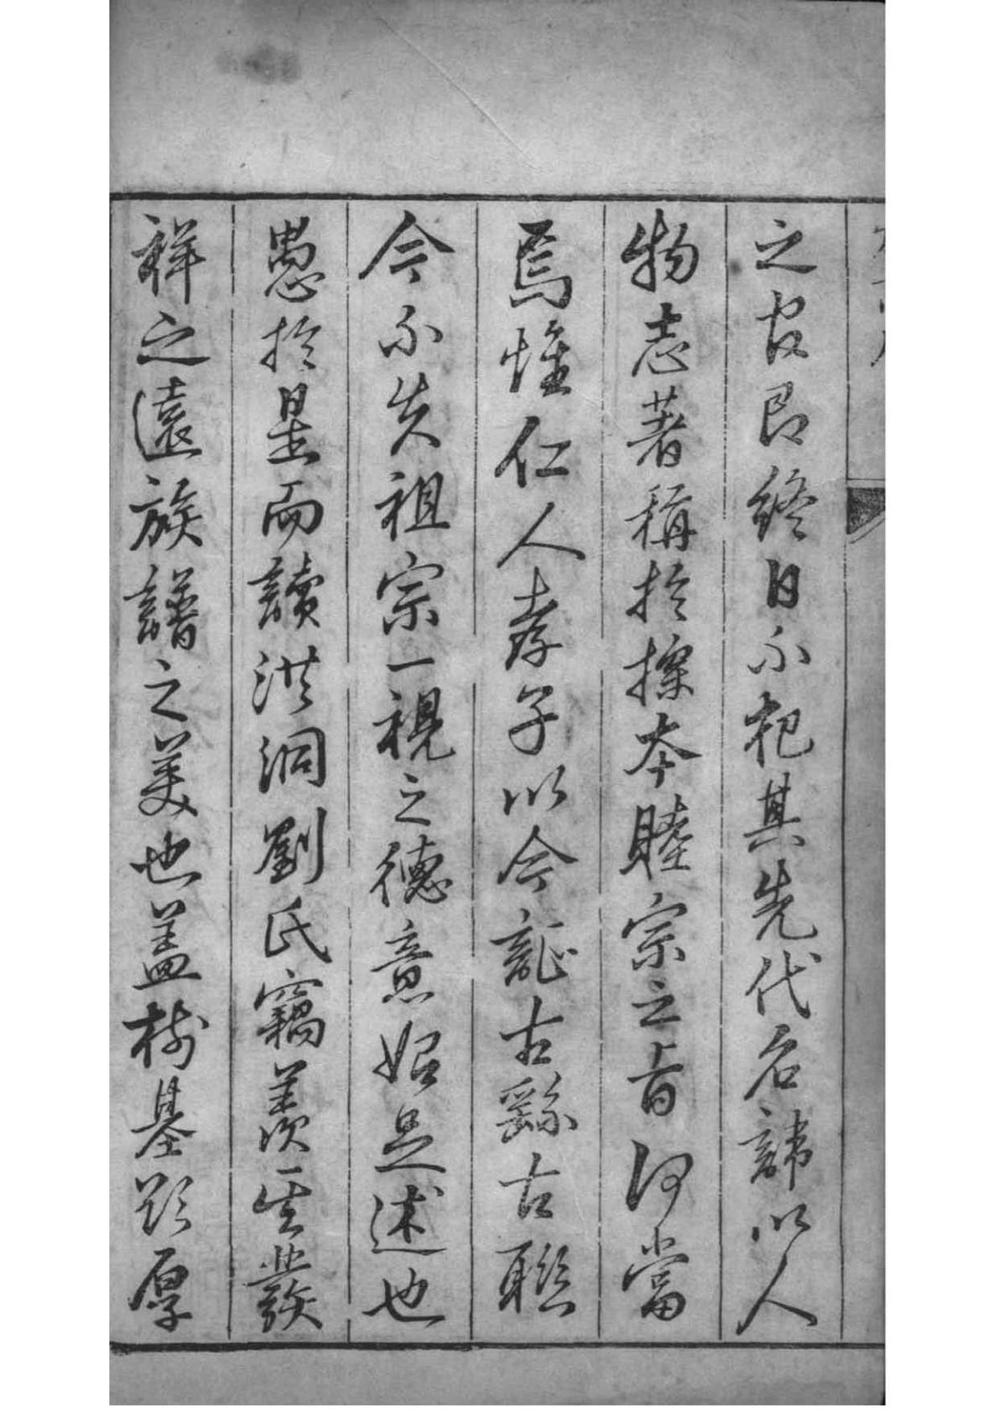 之官即終日不把其先代名諱以人
物志著稱於探本睦宗之旨何當
焉惟仁人孝子以今証古繇古聯
今不失祖宗一視之德意始足述也
愚於是而讀洪洞劉氏竊羨其發
祥之遠族譜之美也蓋樹基欵厚